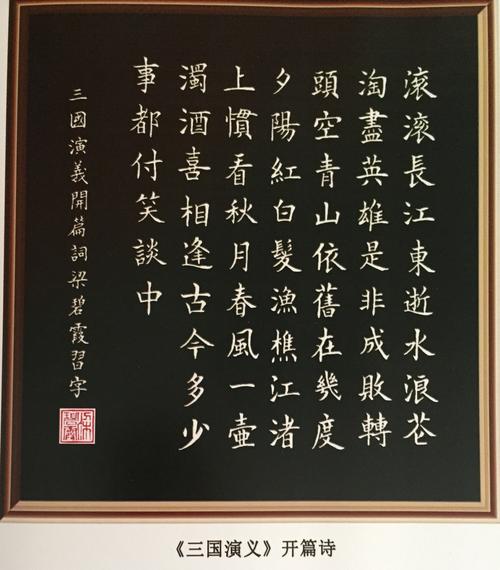 滾滾長江東逝水浪花
淘盡英雄是非成敗轉
頭空青山依舊在幾度
夕陽紅白髮漁樵江渚
上慣看秋月春風一壺
濁酒喜相逢古今多少
事都付笑談中
三國演義開篇詞梁碧霞習字
《三国演义》开篇诗